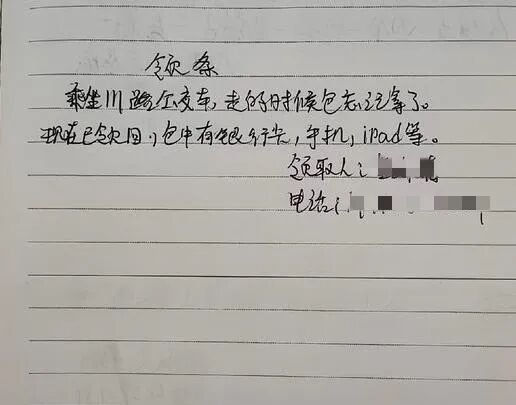 领条
乘坐111路公交车,走的时候包忘记拿了。
现在已领回,包中有银行卡,手机,ipad等。
领取人:
电话: